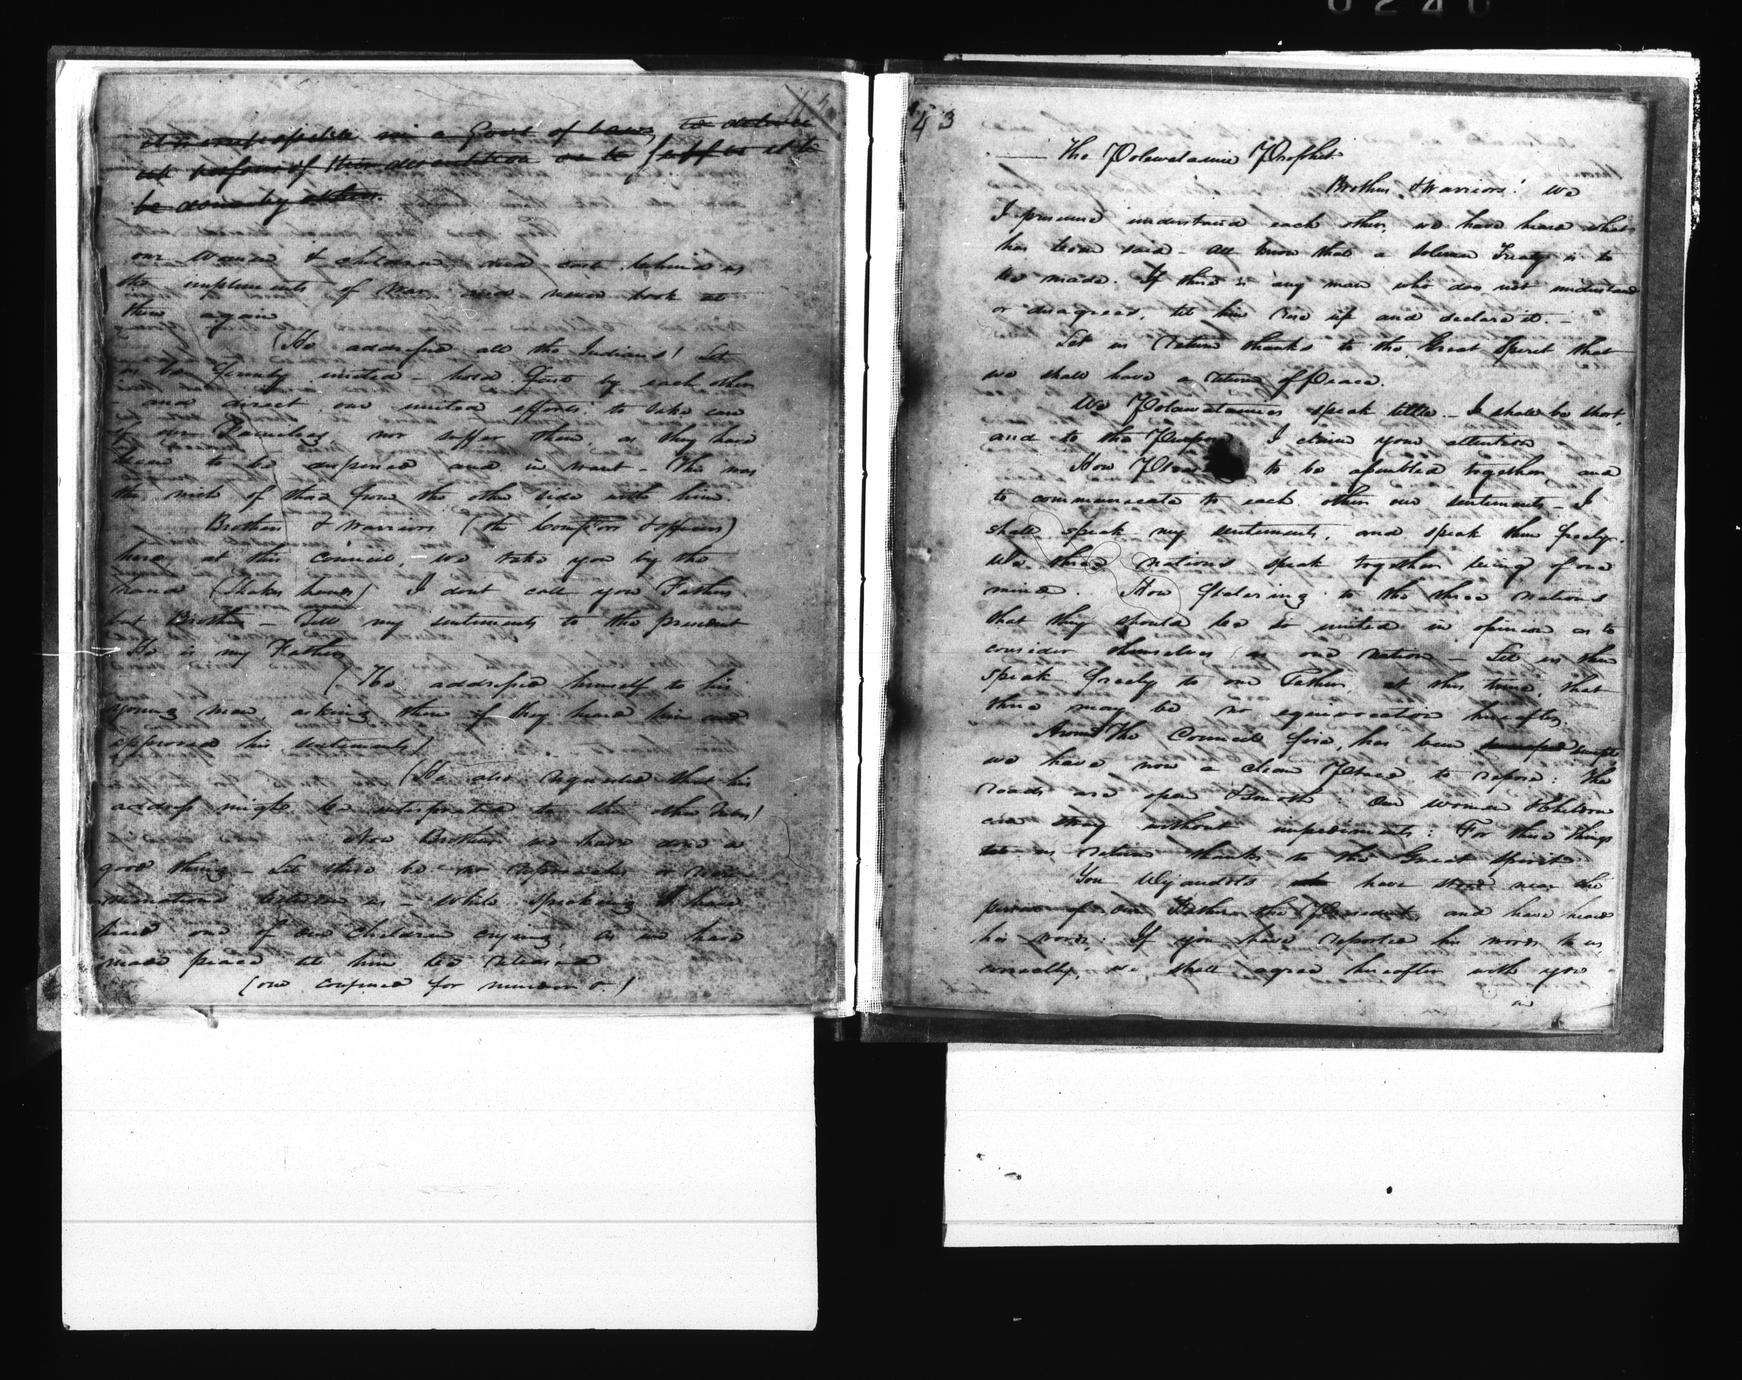 it is impossible in a Govt of laws, to
be done by others.
our Women & children and cast behind us
the impliments of war and never look at
them again
(He addressed all the Indians) Let
us be firmly united - hold fast by each other
- and direct our united efforts to take care
of our Families, nor suffer them, as they have
been to be dispersed and in want - This was
the wish of those from the other side with him.
Brothers & Warriors (the Comssrs & officers)
here at this council, we take you by the
hand (shakes hands) I dont call you Fathers
but Brothers - Tell my sentiments to the president
He is my Father
(He addressed himself to his
young men, asking them if they heard him and
approved his sentiments)
(He also requested that his
address might be interpreted to the other tribes)
Now Brothers we have done a
good thing - Let there be no reproaches or
between us - while speaking I have
heard one of our children crying, as we have
made peace let him be released
(one confined for murder &.)
43
The Potawatamie Prophet
Brothers & Warriors! We
I presume understand each other, we have heard what
has been said - All know that a solemn Treaty is to
be made. If there is any man who does not understand
or disagrees, let him rise up and declare it. -
Let us return thanks to the Great Spirit that
we shall have a return of Peace.
We Potawatamies speak little - I shall be short,
and to the Purpose I claim your attention
How to be assembled together and
to communicate to each other our sentiments - I
shall speak my sentiments, and speak them freely.
We three nations speak together being of one
mind. How flattering to the three nations
that they should be so united in opinion as to
consider themselves as one nation - Let us then
speak freely to our Father, at this time, that
there may be no equivocation hereafter.
Around the Council fire, has been swept
we have now a clean place to repose: The
roads are open & smooth: Our women & children
can stray without impediments: For these things
let us return thanks to the Great Spirit
You Wyandots have stood near the
person of our Father the President and have heard
his words. If you have reported his words to us
correctly, we shall agree hereafter with you
in